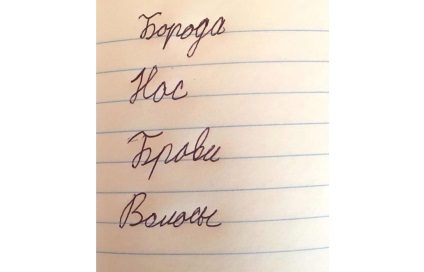 Борода
Нос
Брови
Волосы